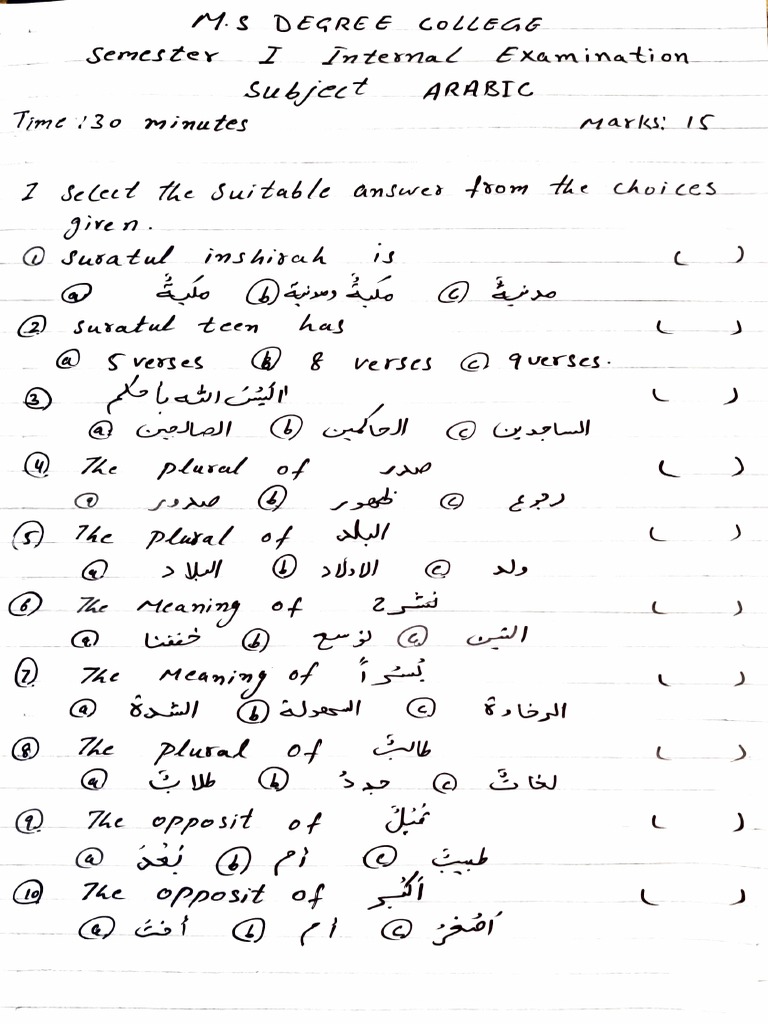 M.S DEGREE COLLEGE
Semester I Internal Examination
Subject ARABIC
Time : 30 minutes Marks: 15
I Select the suitable answer from the choices
given.
① Suratul inshirah is ( )
ⓐ مكيةٌ ⓑ مكيةٌ ومدنية ⓒ مدنيةٌ
② Suratul teen has ( )
ⓐ 5 verses ⓑ 8 verses ⓒ 9 verses.
③ اليس الله باحكم ( )
ⓐ الصالحين ⓑ الحاكمين ⓒ الساجدين
④ The plural of صدر ( )
ⓐ صدور ⓑ ظهور ⓒ رجوع
⑤ The plural of البلد ( )
ⓐ البلاد ⓑ الاولاد ⓒ ولد
⑥ The Meaning of نشرح ( )
ⓐ خففنا ⓑ نوسع ⓒ التين
⑦ The Meaning of يُسْراً ( )
ⓐ الشدة ⓑ السهولة ⓒ
⑧ The plural of طالبٌ ( )
ⓐ طلابٌ ⓑ جددُ ⓒ لغاتٌ
⑨ The opposit of ( )
ⓐ بُعْدَ ⓑ أم ⓒ طبيبٌ
⑩ The opposit of أكْبر ( )
ⓐ أختٌ ⓑ أم ⓒ اَصْغرُ